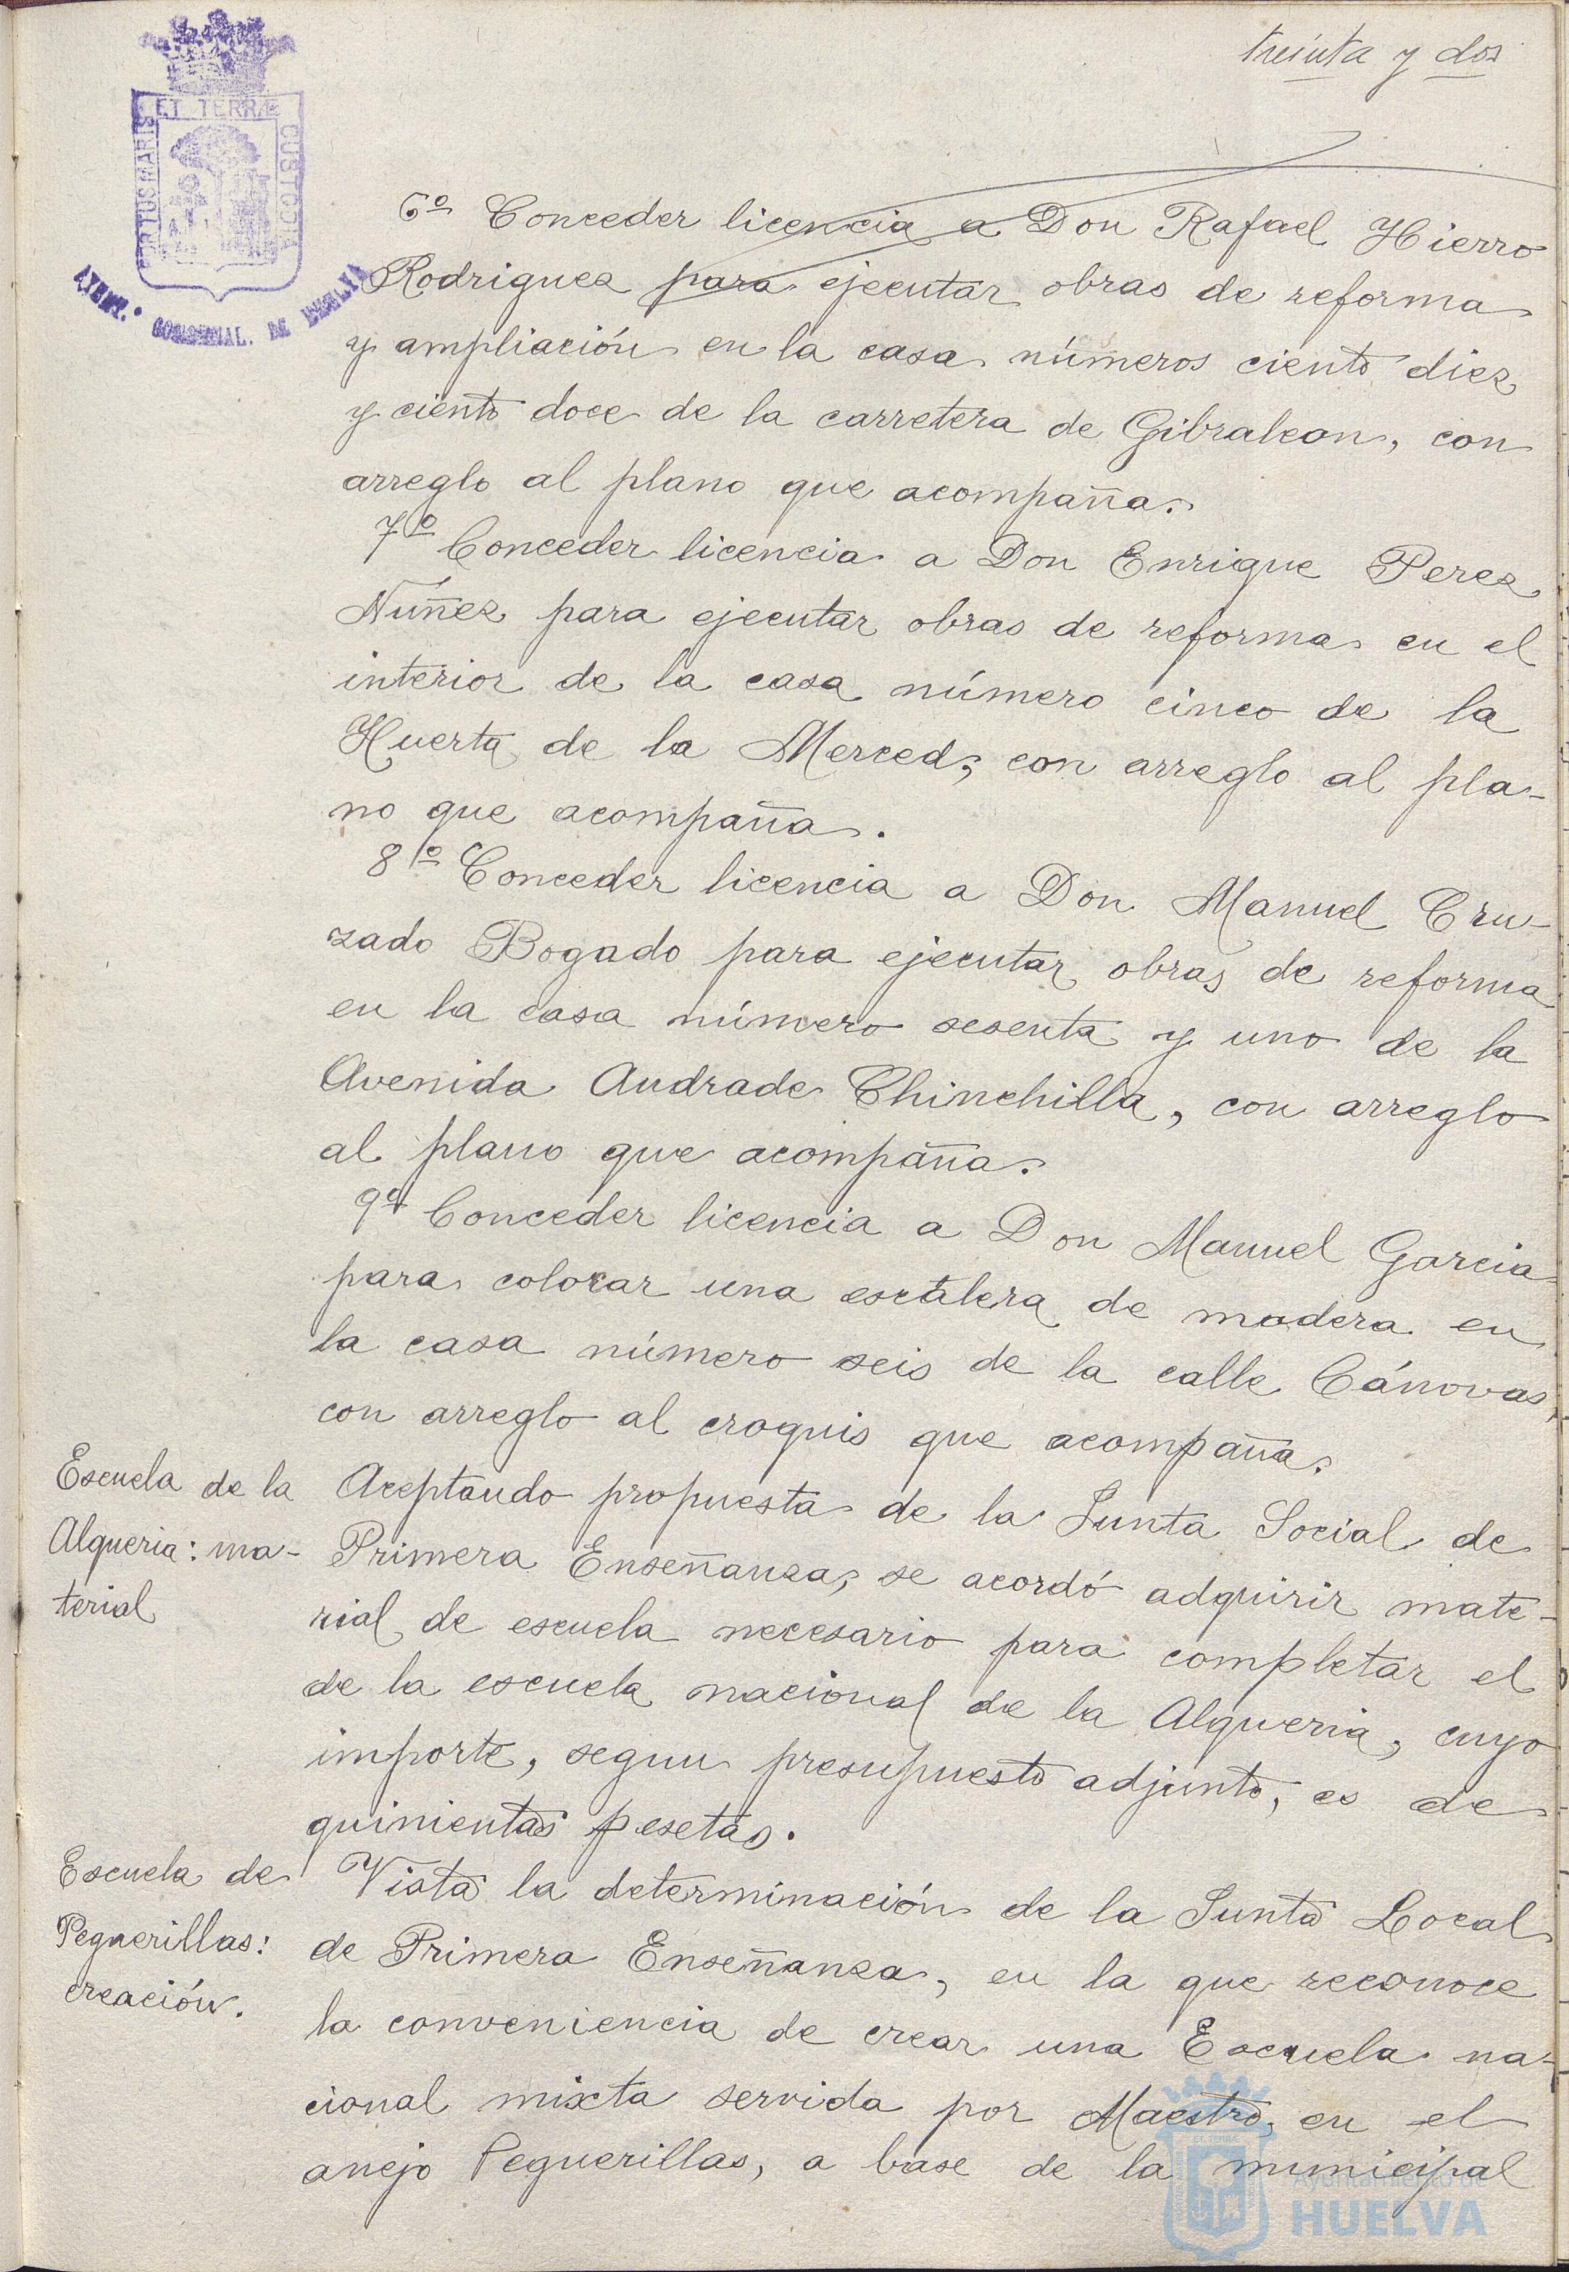 treinta y dos
ET TERRÆ
PORTUS MARIS
CUSTODIA
AYUNT.º CONSTITUCIONAL. DE HUELVA
6º Conceder licencia a Don Rafael Hierro
Rodriguez para ejecutar obras de reforma
y ampliación en la casa números ciento diez
y ciento doce de la carretera de Gibraleon, con
arreglo al plano que acompaña.
7º Conceder licencia a Don Enrique Perez
Nuñez para ejecutar obras de reforma en el
interior de la casa número cinco de la
Huerta de la Merced, con arreglo al pla-
no que acompaña.
8º Conceder licencia a Don Manuel Cru-
zado Bogado para ejecutar obras de reforma
en la casa número sesenta y uno de la
Avenida Andrade Chinchilla, con arreglo
al plano que acompaña.
9º Conceder licencia a Don Manuel Garcia
para colocar una escalera de madera en
la casa número seis de la calle Cánovas,
con arreglo al croquis que acompaña.
Escuela de la
Alqueria: ma-
terial
Aceptando propuesta de la Junta Social de
Primera Enseñanza, se acordó adquirir mate-
rial de escuela necesario para completar el
de la escuela nacional de la Alqueria, cuyo
importe, segun presupuesto adjunto, es de
quinientas pesetas.
Escuela de
Peguerillas:
creación.
Vista la determinación de la Junta Local
de Primera Enseñanza, en la que reconoce
la conveniencia de crear una Escuela na-
cional mixta servida por Maestro, en el
anejo Peguerillas, a base de la municipal
Ayuntamiento de
HUELVA